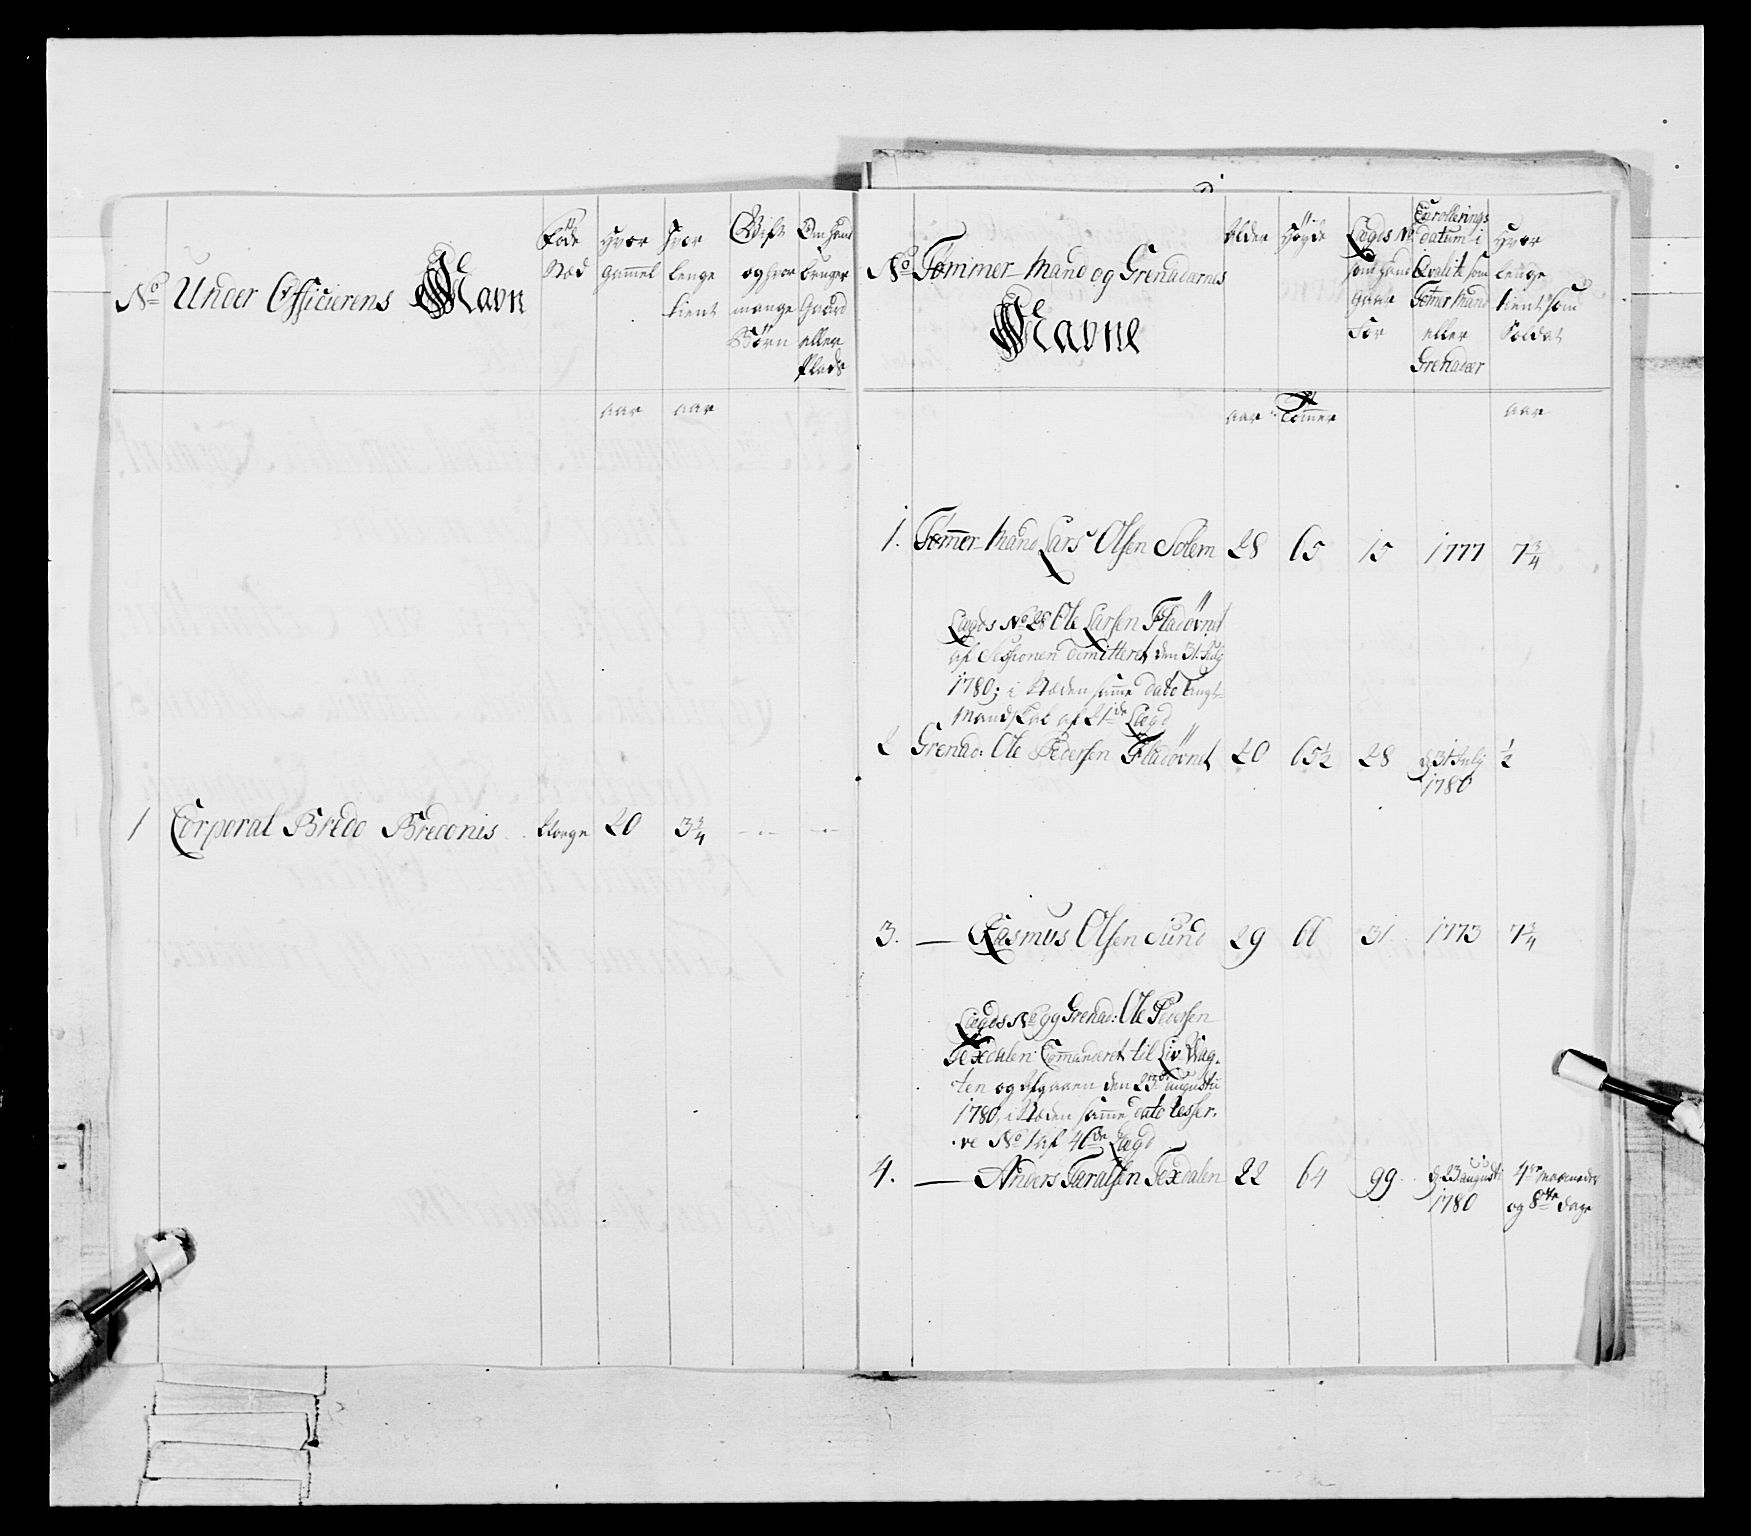 No Under Officierens Navn
Føde Stæd
Hvor gammel
Hvor lenge tient
Gift og hvor mange Børn
Om hand bruger Gaard eller Plads
aar aar
1 Corporal Bredo Bredonis Norge 20 3 3/4 - -
No Tømmer-Mand og Grenaderernes
Navne
Alder
Høyde
Lægds No som hand gaar for
Enrollerings datum i Qvalité som Tømer Mand eller Grenadeer
Hvor lenge tient som Soldat
aar Tommer aar
1. Tømmer-Mand Lars Olsen Solem 28 65 15 1777 7 3/4
Lægds No 28 Ole Larsen Fladøvnet
af Sessionen dimitteret den 31. July
1780; i Steden samme dato Ungt-
Mandskab af 21de Lægd
2 Grenad: Ole Pedersen Fladøvnet 20 65 1/2 28 d. 31 July 1/2
1780
3. — Rasmus Olsen Sund 29 66 31 1773 7 3/4
Lægds No 99 Grenad: Ole Pedersen
Texdalen Comanderet til Liv Vag-
ten og afgaaen den 23de augustii
1780, i Steden samme dato Resser-
ve No 1 af 46de Lægd
4. — Anders Taralsen Texdalen 22 64 99 d. 23 augusti 4re maaneder
1780 og 8te dage